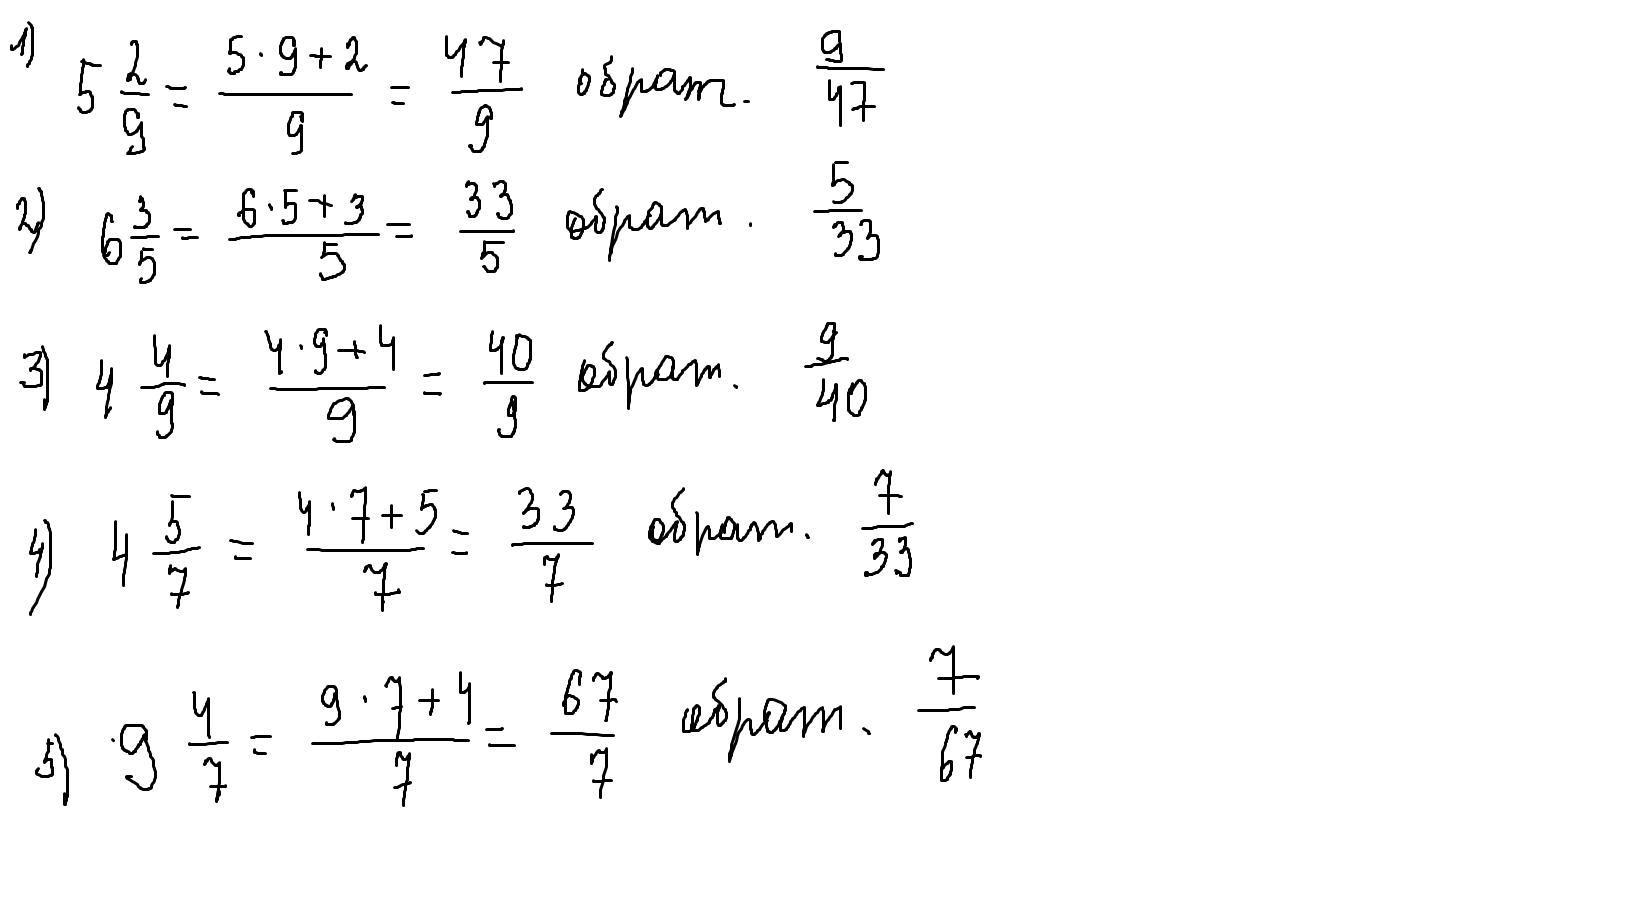 1) 5 2/9 = (5·9+2)/9 = 47/9 обрат. 9/47
2) 6 3/5 = (6·5+3)/5 = 33/5 обрат. 5/33
3) 4 4/9 = (4·9+4)/9 = 40/9 обрат. 9/40
4) 4 5/7 = (4·7+5)/7 = 33/7 обрат. 7/33
5) 9 4/7 = (9·7+4)/7 = 67/7 обрат. 7/67